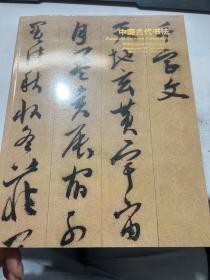 中國古代书法
千字文
天地玄黄宇宙
月盈昃辰宿列
暑往秋收冬藏